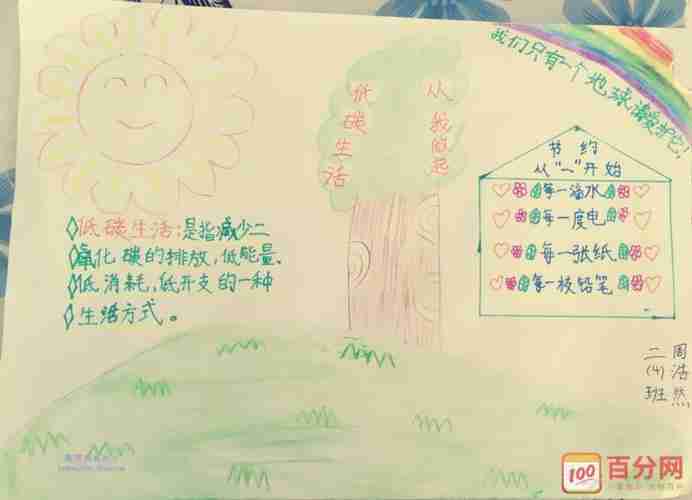 我们只有一个地球,请爱护它。
低碳生活
从我做起
节约
从“一”开始
每一滴水
每一度电
每一张纸
每一枝铅笔
低碳生活:是指减少二
氧化碳的排放,低能量、
低消耗,低开支的一种
生活方式。
二(4)班
周浩然
100 百分网